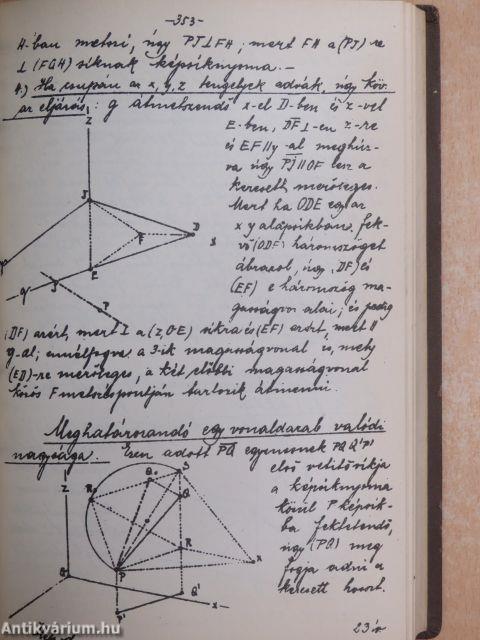 -353-
H-ban metszi, úgy PJ⊥FH, mert FH a (PJ)-re
⊥ (FGH) síknak képsíknyoma.-
4.) Ha csupán az x, y, z tengelyek advák, úgy köv.
az eljárás: g átmetszendő x-el D-ben és z-vel
E-ben, DF⊥-en z-re
és EF∥y-al meghúz-
va úgy PJ∥OF lesz a
keresett merőleges.
Mert ha ODE egy az
xy alapsíkban fek-
vő (ODE) háromszöget
ábrázol, úgy (DF) és
(EF) e háromszög ma-
gasságvonalai; és pedig
(DF) azért, mert ⊥ a (z,O-E) síkra és (EF) azért, mert ∥
y-al; ennélfogva a 3-ik magasságvonal is, mely
(ED)-re merőleges, a két előbbi magasságvonal
közös F metszéspontján tartozik átmenni.
z
J
D
F
x
E
y
P
Meghatározandó egy vonaldarab valódi
nagysága. Ezen adott PQ egyenesnek PQ Q'P'
első vetítősíkja
a képsíknyoma
körül P képsík-
ba fektetendő,
úgy (PQ) meg
fogja adni a
keresett hosszt.
z
S
Q
R
P
x
Q'
P'
x
23
Antikvárium.hu